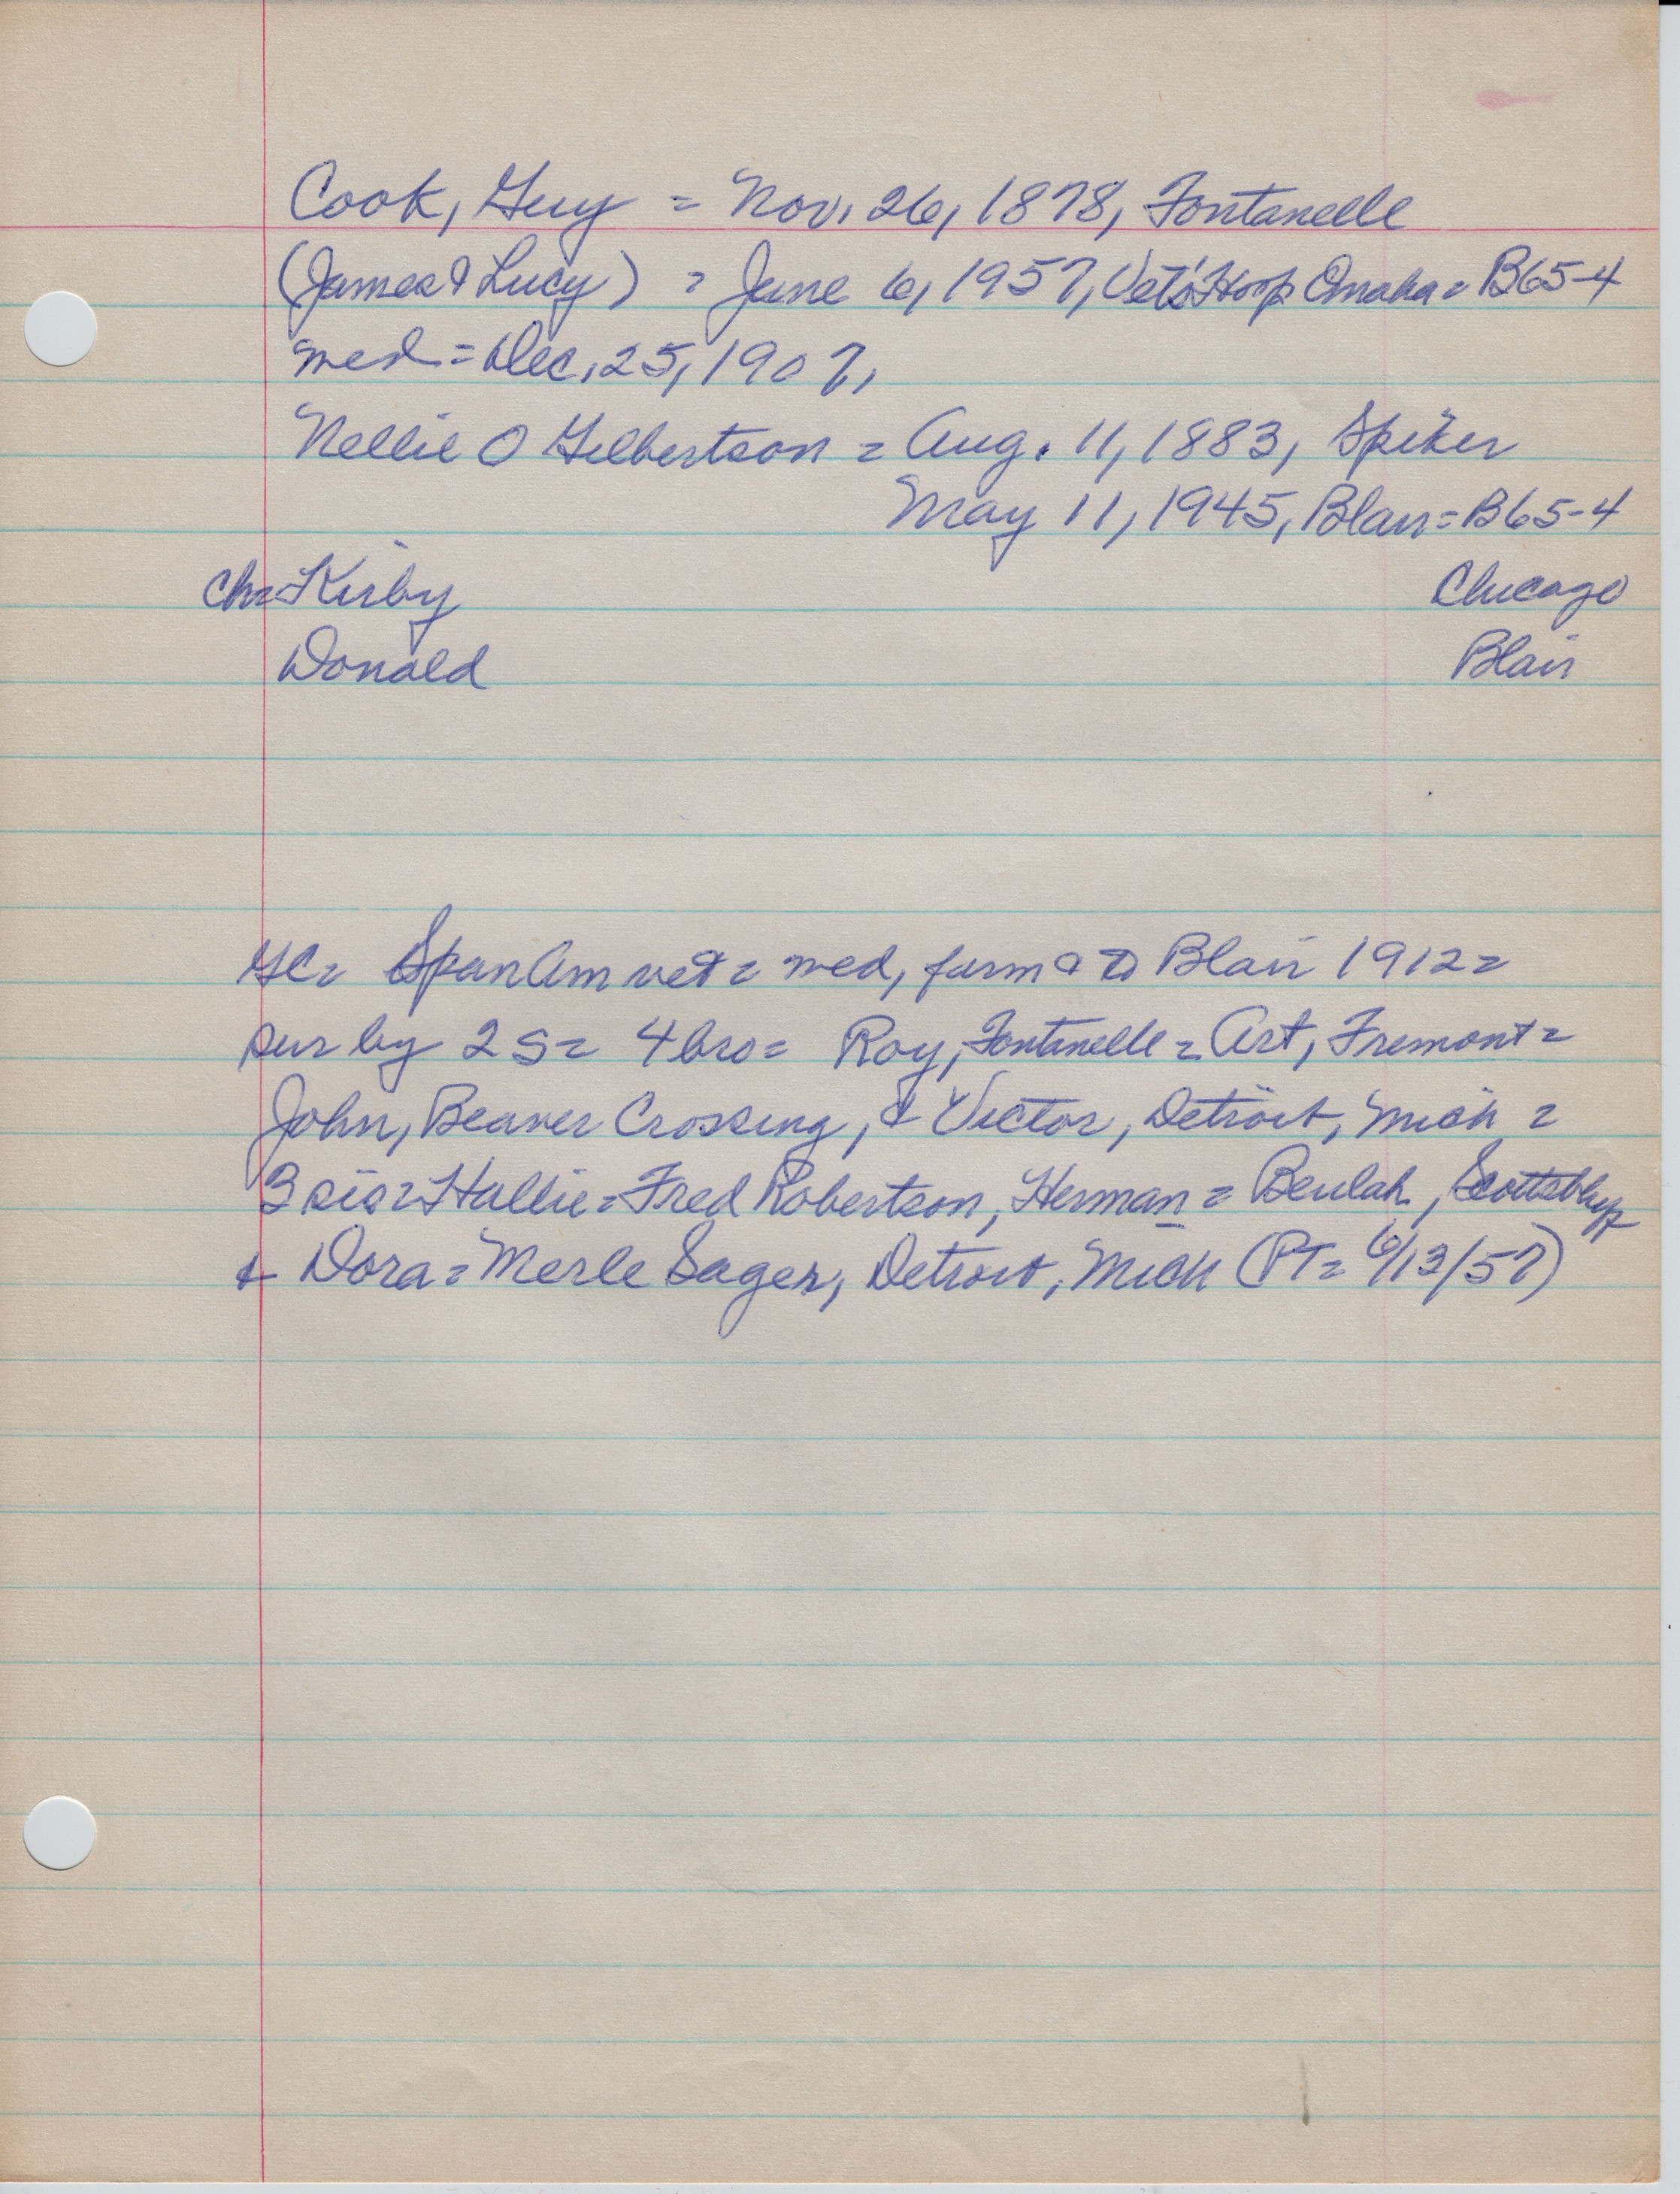 Cook, Guy = Nov. 26, 1878, Fontanelle
(James & Lucy) = June 6, 1957, Vets' Hosp Omaha = B65-4
med = Dec. 25, 1907,
Nellie O Gilbertson = Aug. 11, 1883, Spiker
May 11, 1945, Blair = B65-4
Ch = Kirby Chicago
Donald Blair
GC = Span Am vet = med, farm & to Blair 1912 =
sur by 2 S = 4 bro = Roy, Fontanelle = Art, Fremont =
John, Beaver Crossing, & Victor, Detroit, Mich =
3 sis = Hallie = Fred Robertson, Herman = Beulah, Scottsbluff
& Dora = Merle Sager, Detroit, Mich (PT = 6/13/57)